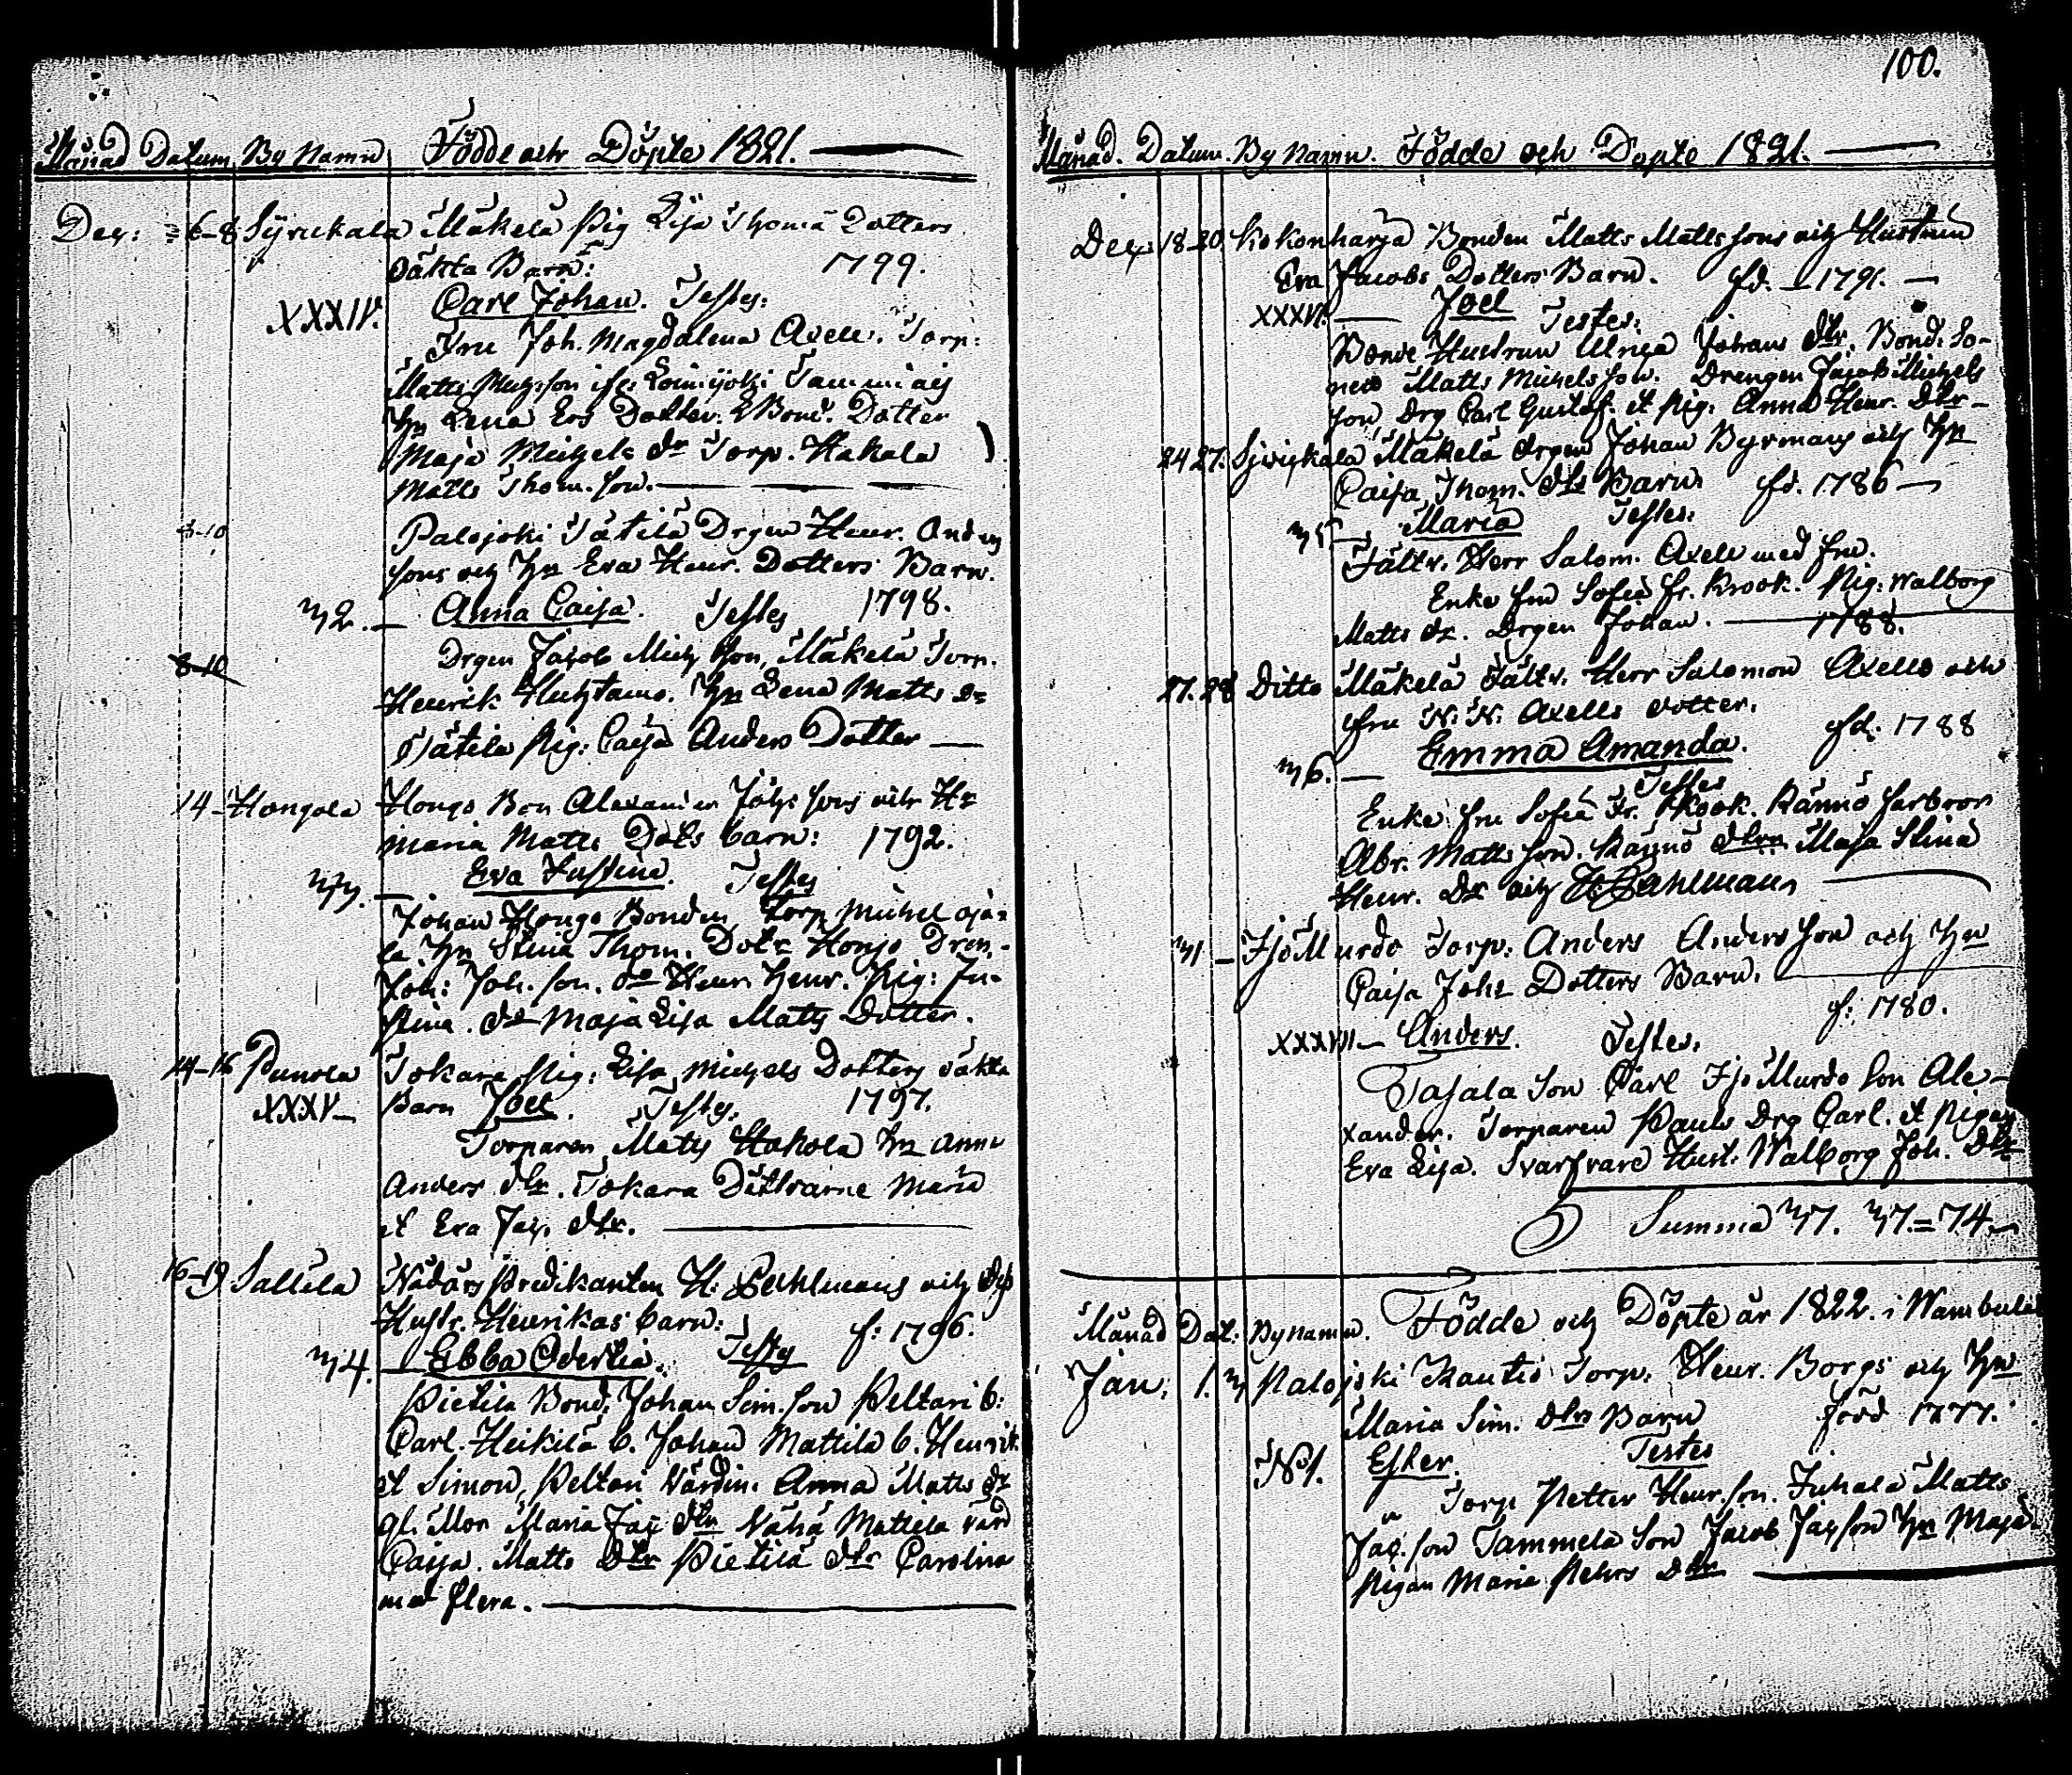 Månad Datum By Namn Födde och Döpte 1821.
Dec: 6-8 Sÿrickala Mäkelä Pig Lisa Thomä Dotters
oäkta Barn: 1799.
XXXIV. Carl Johan. Testes:
Fru Joh. Magdalena Axell. Torp:
Matts
Hu Lena Ers Dotter. Bond. Dotter
Maja Michels dr Torp. Hakala
Matts Thom. son.
8-10 Palojoki Tätilä Drgen Henr. Anders
sons och Hu Eva Henr. Dotters Barn.
32. Anna Caisa. Testes 1798.
Drgen Jacob Mich son, Mäkelä Torp.
8-10
Henrik Hu Lena Matts dr
Tätilä Pig: Caisa Anders Dotter
14 Hongola Hongo Bon Alexander Johs sons och Hu
Maria Matts Dotrs barn: 1792.
33. Eva Justina. Testes
Johan Hongo Bonden Torp Michel Oja-
la Hu Stina Thom. Dotr Hongo Dren.
Joh: Joh. son. do Henr. Henr. Pig: Ju-
stina. do Maja Lisa Matts Dotter.
14-16 Punola Tokara Pig: Lisa Michels Dotters oäkta
XXXV Barn Joel. Testes. 1797.
Torparen Matts Hakola Hu Anna
Anders dtr. Tokara Döttrarne Maria
et Eva Jac. dtr.
16-19 Sallila Nådårs Predikanten H: Pahlmans och dess
Hustr. Henrikas barn: f: 1796.
34. Ebba Oderlia. Testes
Pietilä Bond. Johan Sim. son Peltari b:
Carl. Heikilä b. Johan Mattila b. Henrik
et Simon, Peltari Värdin. Anna Matts dr
gl. Mor Maria Jac dtr Nähä Mattila värd
Caisa. Matts Dtr Pietilä dtr Carolina
med flera.
100.
Månad. Datum. By Namn. Födde och Döpte 1821.
Dec: 18-20 Kokonharja Bonden Matts Matts sons och Hustrun
Eva Jacobs Dotters Barn. fd. 1791.
XXXVI. Joel Testes:
Bonde Hustrun Ulrica Johans dtr. Bond. So-
nen Matts Michels son. Drengen Jacob Michels
son, Drg Carl Gustaf. et Pig: Anna Henr. Dtr
24 27. Sjvickala Mäkelä drgen Johan Byrmans och Hu
Caisa Thom. dtrs Barn. fd. 1786
35. Maria Testes:
Fältv. Herr Salom. Axell med fru.
Enke fru Sofia Fr. Krook. Pig: Walborg
Matts dr. Drgen Johan. 1788.
27. 28 Ditto Mäkelä Fältv. Herr Salomon Axells och
fru N. N. Axells dotter.
36. Emma Amanda. fd. 1788
Testes
Enke fru Sofia Fr. Krook. Rännö farbror
Abr. Matts son. Rännö dtrn Maja Stina
Henr. Dr och H Pahlman
31 Isjo Murdo Torp: Anders Anders son och Hu
Caisa Johs Dotters Barn.
f: 1780.
XXXVII Anders. Testes.
Tasala Son Carl Isjo Murdo Son Ale-
xander. Torparen Paul Drg Carl. et Pigan
Eva Lisa. Svarfvare Hust. Walborg Joh. Dtr
Summa 37. 37.=74.
Månad Dat: Bynamn. Födde och Döpte år 1822. i Wambula
Jan: 1. 3 Palojoki Rautio Torp. Henr. Borgs och Hu
Maria Sim. dtrs Barn född 1777.
No 1. Ester. Testes
Torp Petter Henr. son. Juhala Matts
Jac. son Tammela Son Jacob Jac son Hu Maja
Pigan Maria Petters dtr